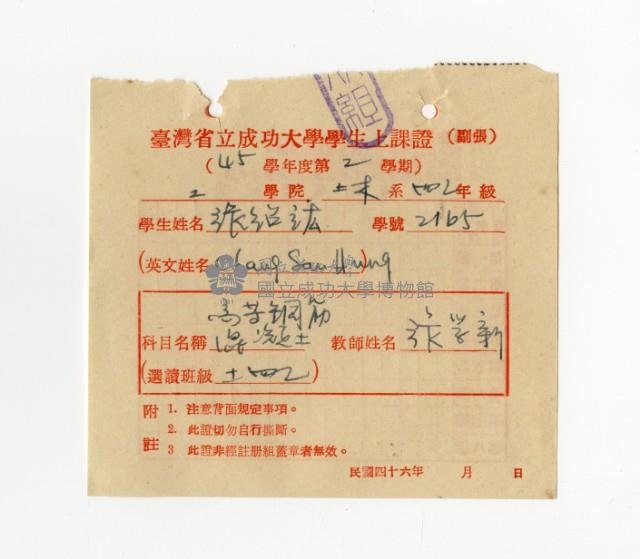 組
臺灣省立成功大學學生上課證 (副張)
( 45 學年度第 2 學期 )
工 學院 土木 系 四乙 年級
學生姓名 張紹 學號 2165
(英文姓名 )
國立成功大學博物館
高等鋼筋
科目名稱 混凝土 教師姓名 張學新
(選讀班級 土四乙 )
附註 1. 注意背面規定事項。
2. 此證切勿自行撕斷。
3 此證非經註册組蓋章者無效。
民國四十六年 月 日